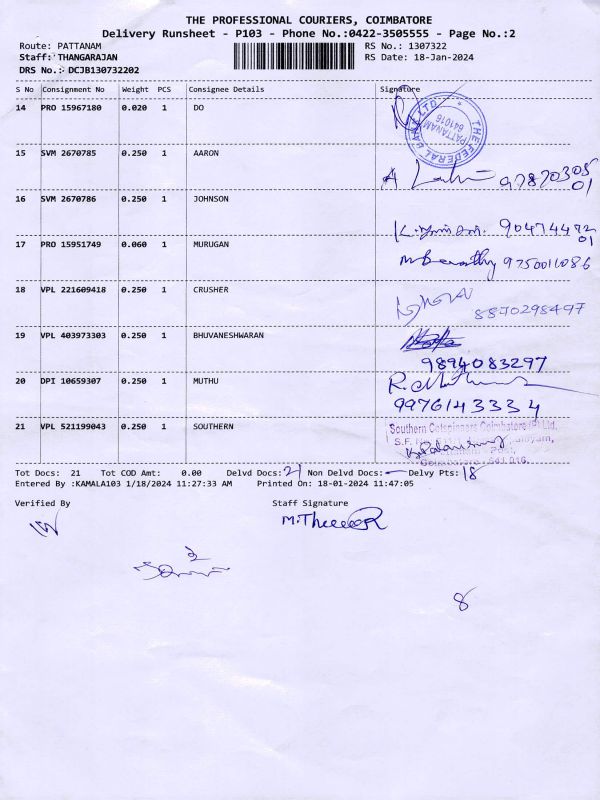 THE PROFESSIONAL COURIERS, COIMBATORE
Delivery Runsheet - P103 - Phone No.:0422-3505555 - Page No.:2
Route: PATTANAM RS No.: 1307322
Staff: THANGARAJAN RS Date: 18-Jan-2024
DRS No.: DCJB130732202
S No Consignment No Weight PCS Consignee Details Signature
14 PRO 15967180 0.020 1 DO
THE FEDERAL BANK LTD
PATTANAM
641016
15 SVM 2670785 0.250 1 AARON
9787030501
16 SVM 2670786 0.250 1 JOHNSON
9047447201
17 PRO 15951749 0.060 1 MURUGAN
9750011086
18 VPL 221609418 0.250 1 CRUSHER
8870298497
19 VPL 403973303 0.250 1 BHUVANESHWARAN
9894083297
20 DPI 10659307 0.250 1 MUTHU
9976143334
21 VPL 521199043 0.250 1 SOUTHERN
Southern Cotspinners Coimbatore (P) Ltd.
Tot Docs: 21 Tot COD Amt: 0.00 Delvd Docs: 21 Non Delvd Docs: - Delvy Pts: 18
Entered By :KAMALA103 1/18/2024 11:27:33 AM Printed On: 18-01-2024 11:47:05
Verified By Staff Signature
8